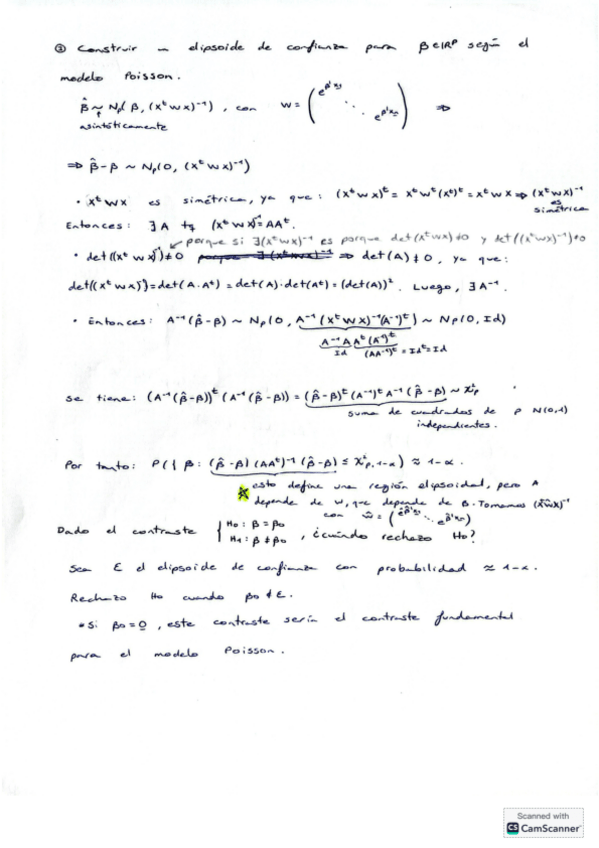 ② Construir un elipsoide de confianza para β∈ℝᵖ según el
modelo Poisson.
β̂ ~ Np(β, (XᵗWX)⁻¹), con W = (e^{β'x₁} ⋱ e^{β'xₙ}) ⇒
↑
asintóticamente
⇒ β̂-β ~ Np(0, (XᵗWX)⁻¹)
• XᵗWX es simétrica, ya que: (XᵗWX)ᵗ = XᵗWᵗ(Xᵗ)ᵗ = XᵗWX ⇒ (XᵗWX)⁻¹
es
simétrica
Entonces: ∃ A tq (XᵗWX)⁻¹ = AAᵗ.
porque si ∃(XᵗWX)⁻¹ es porque det(XᵗWX)≠0 y det((XᵗWX)⁻¹)≠0
• det((XᵗWX)⁻¹)≠0 ⇒ det(A)≠0, ya que:
det((XᵗWX)⁻¹) = det(A·Aᵗ) = det(A)·det(Aᵗ) = (det(A))². Luego, ∃A⁻¹.
• Entonces: A⁻¹(β̂-β) ~ Np(0, A⁻¹(XᵗWX)⁻¹(A⁻¹)ᵗ) ~ Np(0, Id)
A⁻¹A Aᵗ(A⁻¹)ᵗ
Id (AA⁻¹)ᵗ = Idᵗ = Id
Se tiene: (A⁻¹(β̂-β))ᵗ (A⁻¹(β̂-β)) = (β̂-β)ᵗ(A⁻¹)ᵗA⁻¹(β̂-β) ~ χ²ₚ
suma de cuadrados de p N(0,1)
independientes.
Por tanto: P({β: (β̂-β)(AAᵗ)⁻¹(β̂-β) ≤ χ²ₚ,₁₋α) ≈ 1-α.
esto define una región elipsoidal, pero A
depende de W, que depende de β. Tomamos (XŴX)⁻¹
con Ŵ = (e^{β̂'x₁} ⋱ e^{β̂'xₙ})
Dado el contraste { H₀: β = β₀ H₁: β ≠ β₀ , ¿cuándo rechazo H₀?
Sea E el elipsoide de confianza con probabilidad ≈ 1-α.
Rechazo H₀ cuando β₀ ∉ E.
• Si β₀ = 0, este contraste sería el contraste fundamental
para el modelo Poisson.
Scanned with
CS CamScanner